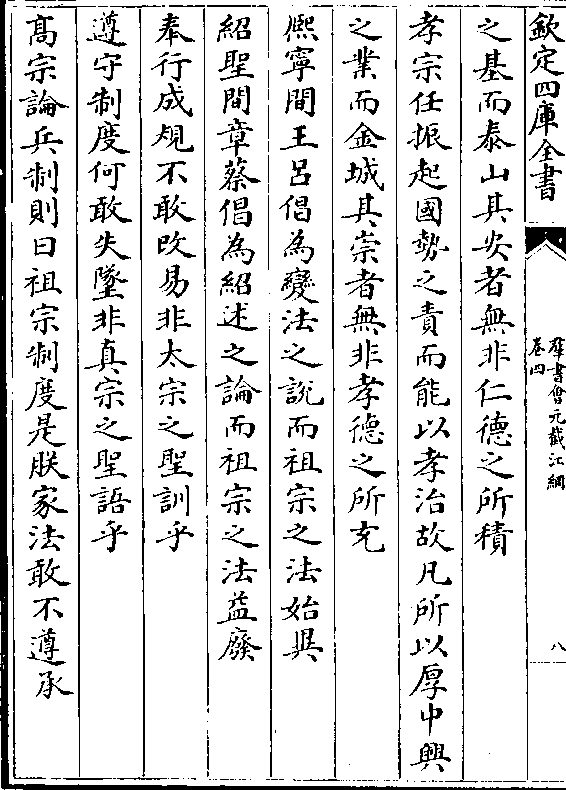 欽定四庫全書
羣書會元截江網
卷四
八
之基而泰山其安者無非仁德之所積
孝宗任振起國勢之責而能以孝治故凡所以厚中興
之業而金城其崇者無非孝德之所充
熈寧間王吕倡為變法之説而祖宗之法始異
紹聖間章蔡倡為紹述之論而祖宗之法益廢
奉行成規不敢改易非太宗之聖訓乎
遵守制度何敢失墜非真宗之聖語乎
髙宗論兵制則曰祖宗制度是朕家法敢不遵承